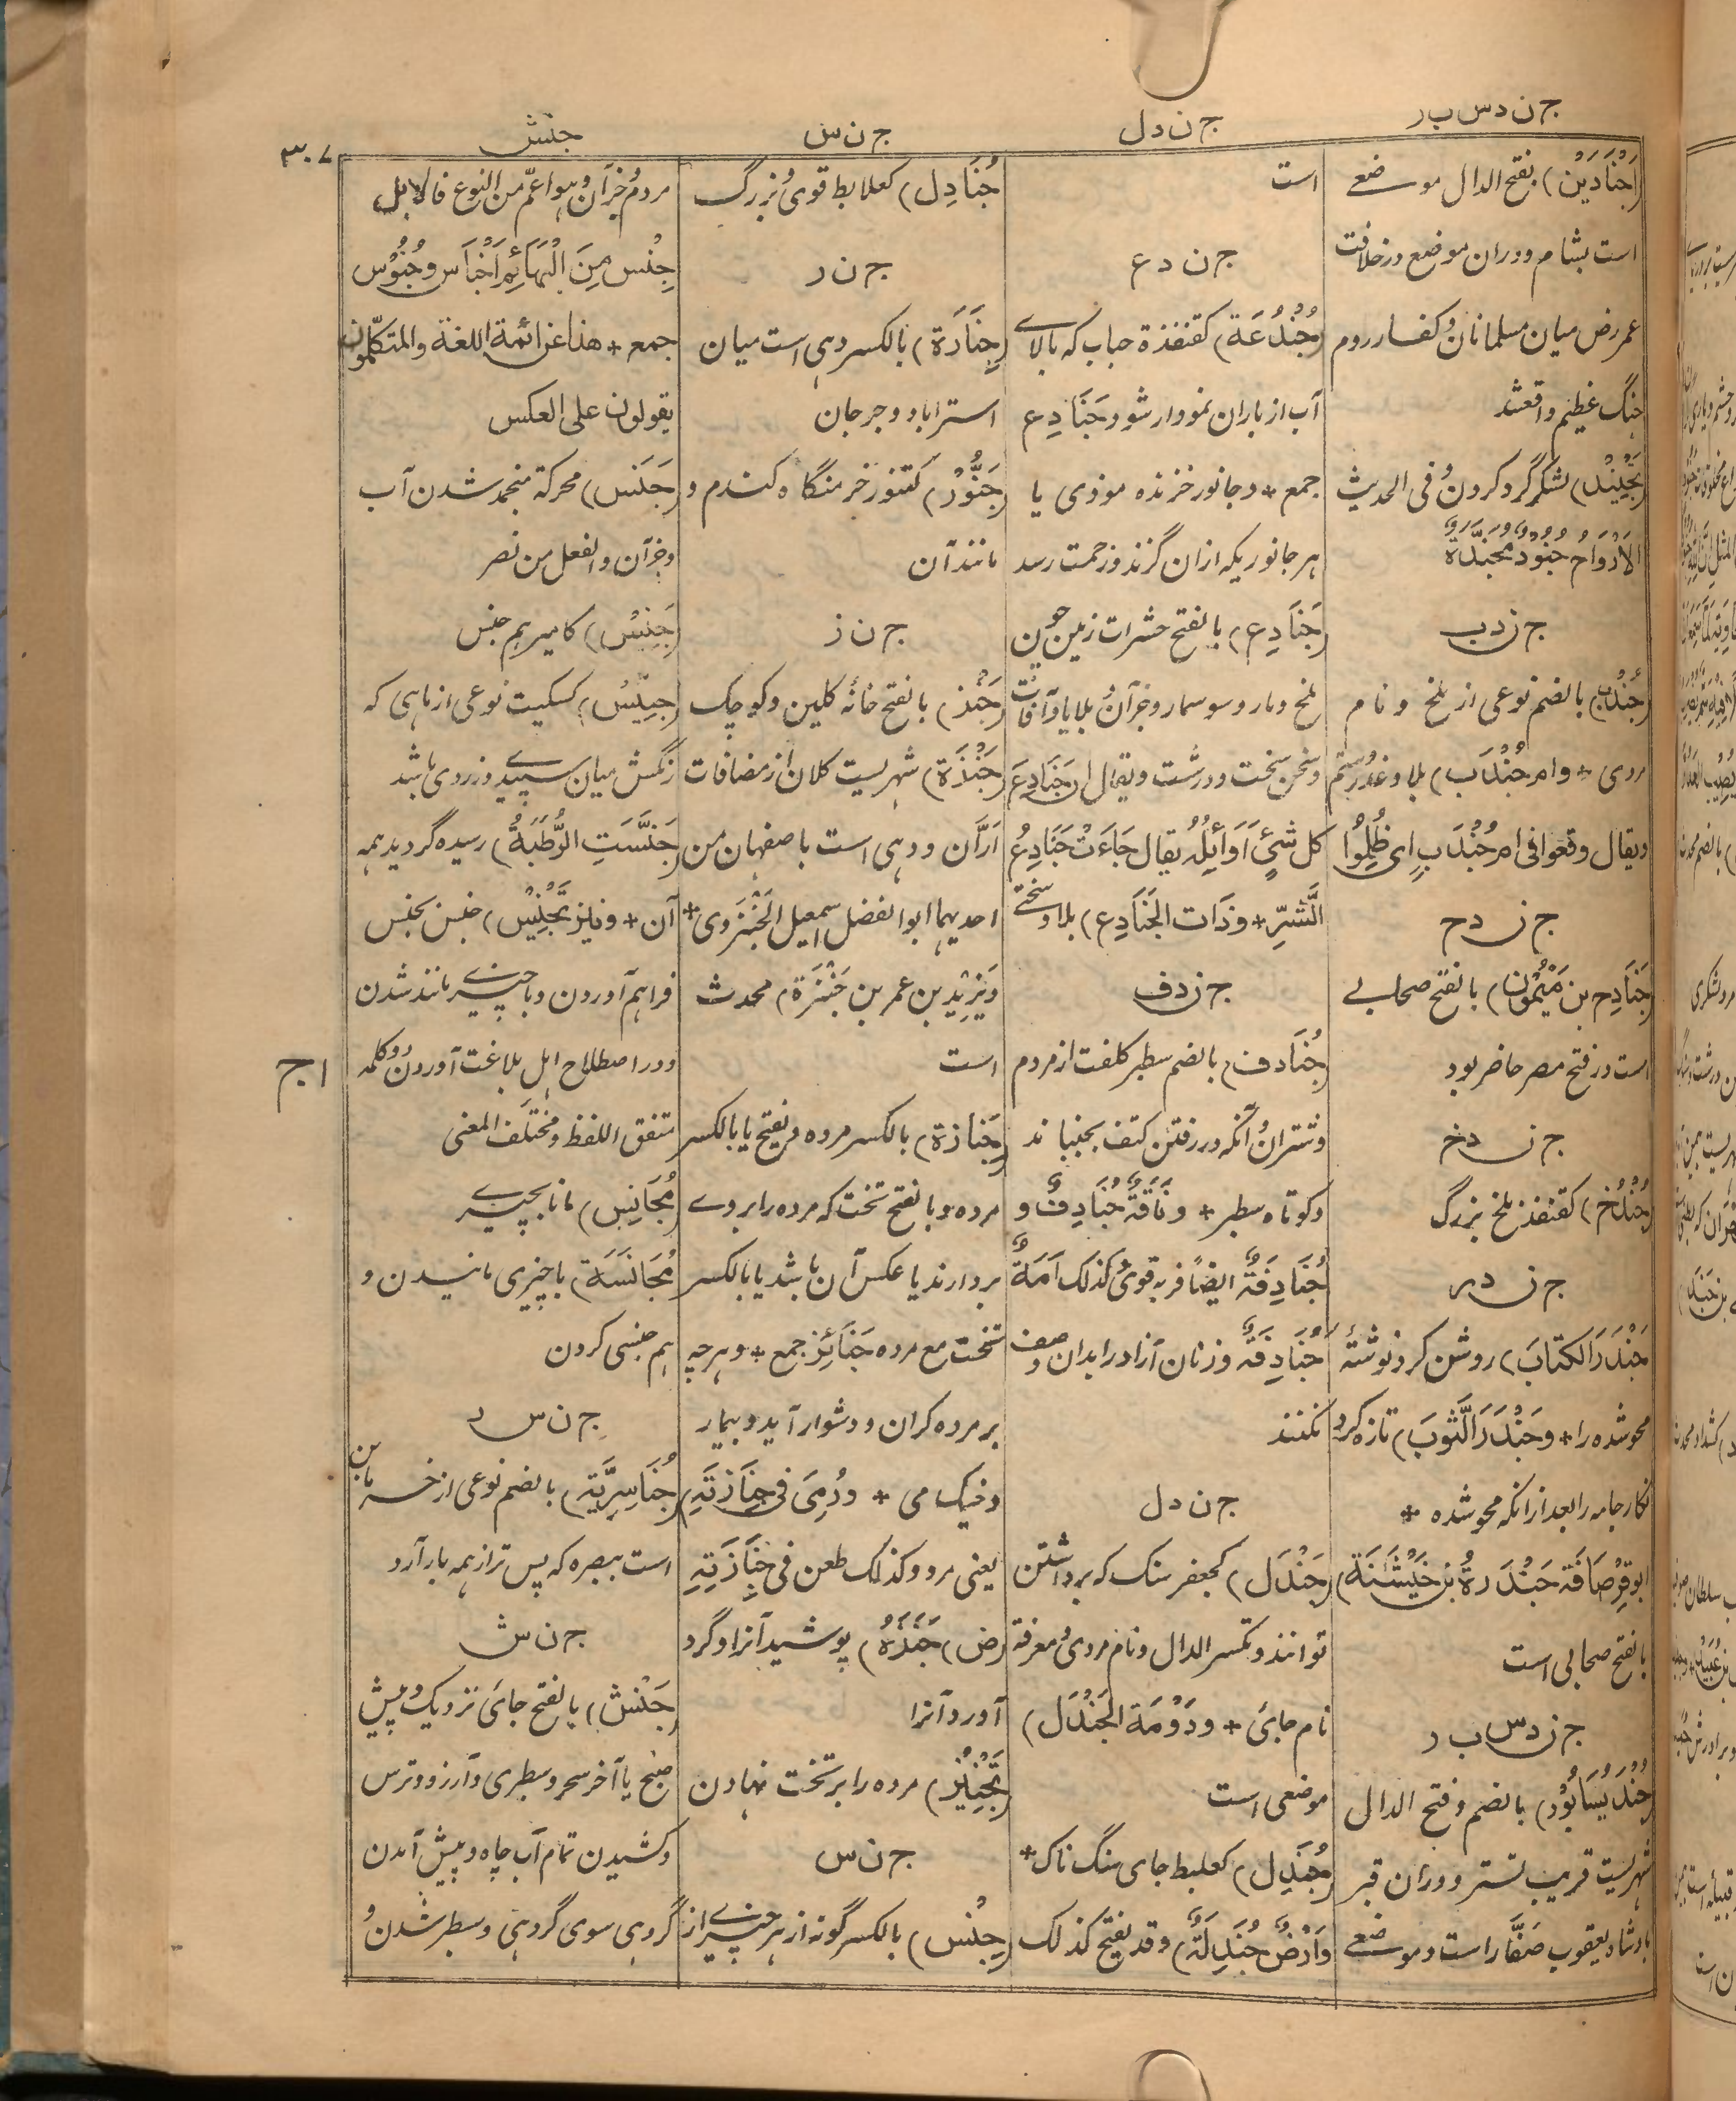 ج ن د س ب ر
ج ن د ل
ج ن س
جنش
۳۰۷
(اَجْنَادَیْن) بفتح الدال موضعی
است بشام و دران موضع در خلافت
عمر رض میان مسلمانان و کفار روم
جنگ عظیم واقع شد
(تَجْنِیْد) لشکر گرد کردن و فی الحدیث
الاَرْوَاحُ جُنُوْدٌ مُجَنَّدَةٌ
ج ن د ب
(جُنْدُب) بالضم نوعی از ملخ و نام
مردی + و ام جُنْدَب) بلا و غدر و ستم
ویقال وقعوا فی ام جُنْدَبٍ ای ظُلِمُوْا
ج ن د ح
(جَنَادِح بن مَیْمُوْن) بالفتح صحابی
است در فتح مصر حاضر بود
ج ن د خ
(جُنْدُخ) کقنفذ ملخ بزرگ
ج ن د ر
(جَنْدَرَ الکتابَ) روشن کرد نوشتهٔ
محوشده را + وجَنْدَرَ الثَّوبَ) تازه کرد
نگار جامه را بعد ازانکه محو شده +
ابوقِرْصَافَة جَنْدَرةُ بن خَیْشَنَة)
بالفتح صحابی است
ج ن د س ب ر
(جُنْدَیْسَابُوْر) بالضم وفتح الدال
شهریست قریب تستر و دران قبر
بادشاه یعقوب صَفَّار است و موضعی
است
ج ن د ع
(جُنْدُعَة) کقنفذة حباب که بالای
آب از باران نمودار شود جَنَادِع
جمع + و جانور خزنده موذی یا
هر جانوریکه ازان گزند و زحمت رسد
(جَنَادِع) بالفتح حشرات زمین چون
ملخ و مار و سوسمار و جزآن و بلایا و آفات
و سخن سخت و درشت ویقال ان جَنَادِعَ
کل شیٍٔ اَوَائِلُه یقال جَاءَتْ جَنَادِعُ
الشَّرِّ + وذَات الجَنَادِع) بلا و سختی
ج ن د ف
(جُنَادف) بالضم سطبر کلفت از مردم
و شتران و آنکه در رفتن کتف بجنباند
و کوتاه سطبر + ونَاقَةٌ جُنَادِفٌ و
جُنَادِفَةٌ ایضًا فربه قوی و کذلک اَمَةٌ
جُنَادِفَةٌ و زنان آزاد را بدان وصف
نکنند
ج ن د ل
(جَنْدَل) کجعفر سنگ که برداشتن
توانند و تکسر الدال و نام مردی و معرفة
نام جای + ودَوْمَة الجَنْدَل)
موضعی است
(جُنَدِل) کعلبط جای سنگ ناک +
وَاَرْضٌ جُنَدِلَةٌ) وقد یفتح کذلک
(جُنَادِل) کعلابط قوی و بزرگ
ج ن ر
(جِنَارَة) بالکسر دهی است میان
استراباد و جرجان
(جَنُّوْر) کتنور خرمنگاه گندم و
مانند آن
ج ن ز
(جَنْز) بالفتح خانهٔ گلین و کوچک
(جَنْزَة) شهریست کلان از مضافات
اَرَّان و دهی است باصفهان من
احدیهما ابوالفضل اسمعیل الجَنْزَوی +
ویَزِیْد بن عمر بن جَنْزَة) محدث
است
(جِنَازة) بالکسر مرده ویفتح یا بالکسر
مرده و بالفتح تخت که مرده را بروی
بردارند یا عکس آن باشد یا بالکسر
تخت مع مرده جَنَائِز جمع + و هرچه
بر مرد گران و دشوار آید و بیمار
و خیک می + ورُمِیَ فی جَنَازَتِه)
یعنی مرد و کذلک طعن فی جِنَازَتِهِ
(ض) جَنَزَهُ) پوشید آنرا و گرد
آورد آنرا
(تَجْنِیْز) مرده را بر تخت نهادن
ج ن س
(جِنْس) بالکسر گونه از هر چیزی از
مردم و جز آن وهو اعم من النوع فالابل
جِنْس مِنَ الْبَهَائِم اَجْنَاس وجُنُوْس
جمع + هذا عن ائمة اللغة والمتکلمون
یقولون علی العکس
(جَنَس) محرکة منجمد شدن آب
و جزآن والفعل من نصر
(جَنِیْس) کامیر هم جنس
(جِنِّیْس) کسکیت نوعی از ماهی که
رنگش میان سپیدی و زردی باشد
(جَنَّسَتِ الرُّطَبَةُ) رسیده گردید همه
آن + ونیز تَجْنِیْس) جنس بجنس
فراهم آوردن و با چیزی مانند شدن
و در اصطلاح اهل بلاغت آوردن دو کلمه
متفق اللفظ و مختلف المعنی
(مُجَانِس) مانا بچیزی
(مُجَانَسَة) باچیزی مانیدن و
هم جنسی کردن
ج ن س ر
(جُنَاسِرِیَّة) بالضم نوعی از خرما بن
است ببصره که پس تر از همه بار آرد
ج ن ش
(جَنْش) بالفتح جای نزدیک و پیش
صبح یا آخر سحر و سطبری و آرزو و ترس
و کشیدن تمام آب چاه و پیش آمدن
گروهی سوی گروهی و سطبر شدن و
ج ۱